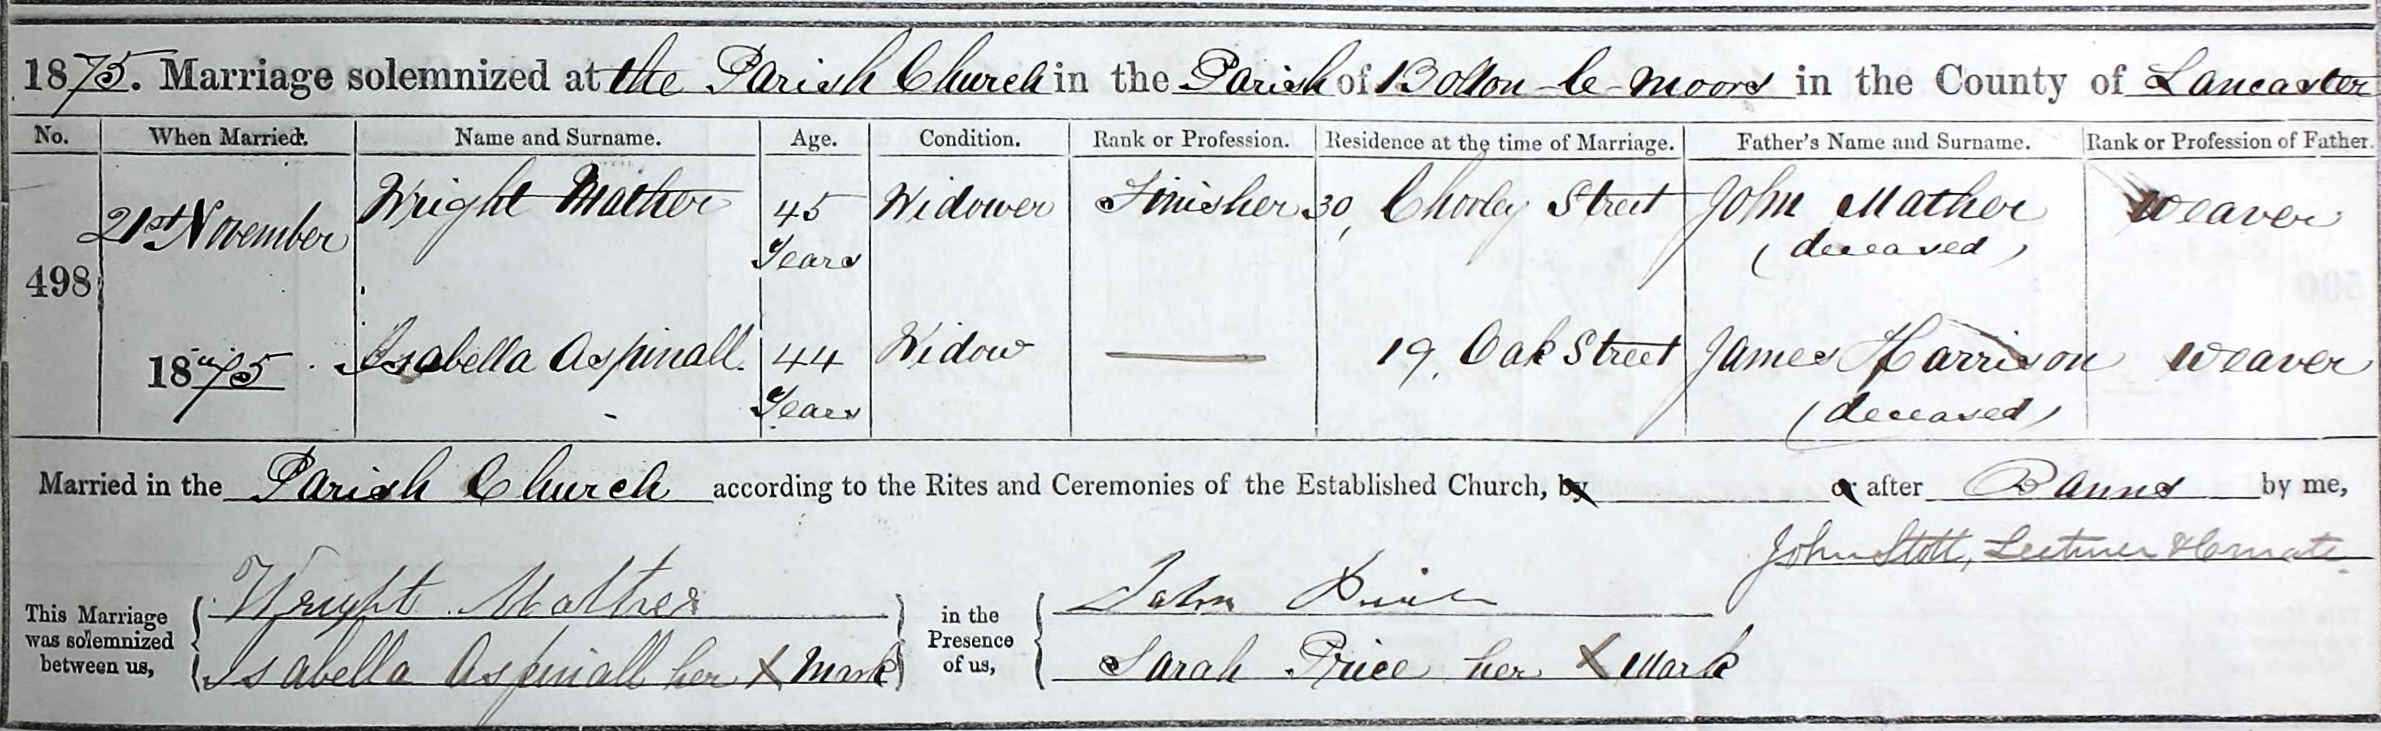 1875. Marriage solemnized at the Parish Church in the Parish of Bolton-le-Moors in the County of Lancaster
No. When Married. Name and Surname. Age. Condition. Rank or Profession. Residence at the time of Marriage. Father's Name and Surname. Rank or Profession of Father.
498 21st November Wright Mather 45 Years Widower Finisher 30, Chorley Street John Mather (deceased) Weaver
1875 Isabella Aspinall. 44 Years Widow — 19, Oak Street James Harrison (deceased) Weaver
Married in the Parish Church according to the Rites and Ceremonies of the Established Church, by or after Banns by me,
John Stott, Lecturer & Curate
This Marriage was solemnized between us, Wright Mather in the Presence of us, John
Isabella Aspinall her X Mark Sarah Price her X Mark